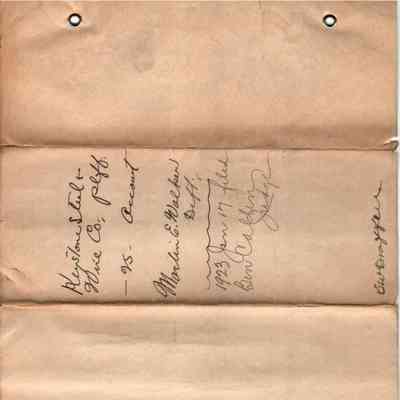 Keystone Steel &
Wire Co. Plff.
— vs — Account
Marlin E. Walker
Deft.
1923 Jan 17 filed
Ben
Judge